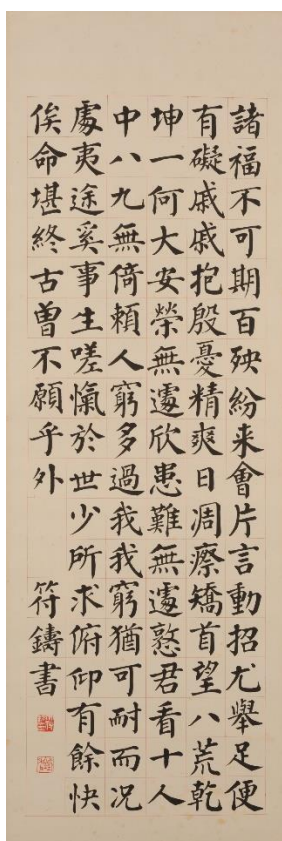 諸福不可期百殃紛来會片言動招尤舉足便
有礙戚戚抱殷憂精爽日凋瘵矯首望八荒乾
坤一何大安榮無遽欣患難無遽憝君看十人
中八九無倚賴人窮多過我我窮猶可耐而況
處夷途奚事生嗟愾於世少所求俯仰有餘快
俟命堪終古曾不願乎外 符鑄書